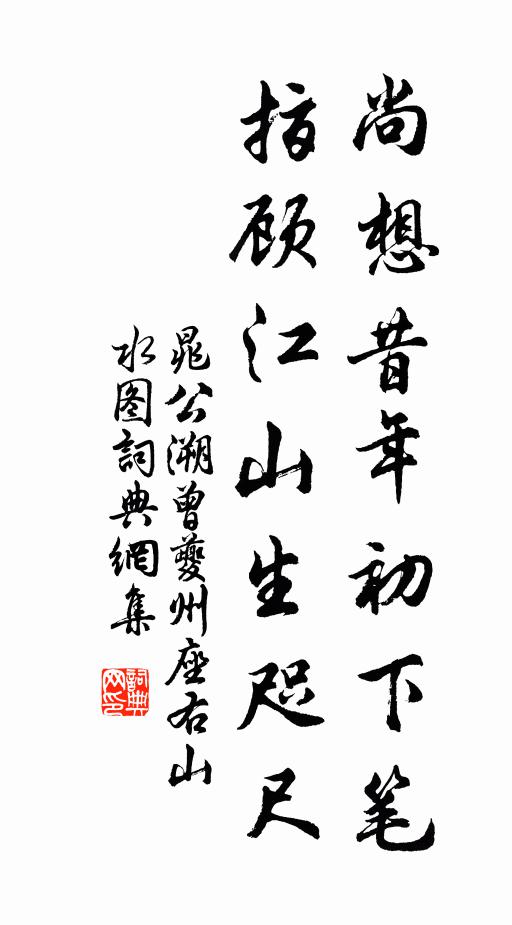 尚想昔年初下笔
指顾江山生咫尺
晁公溯曾夔州座右山
水图詞典網集
詞典网印